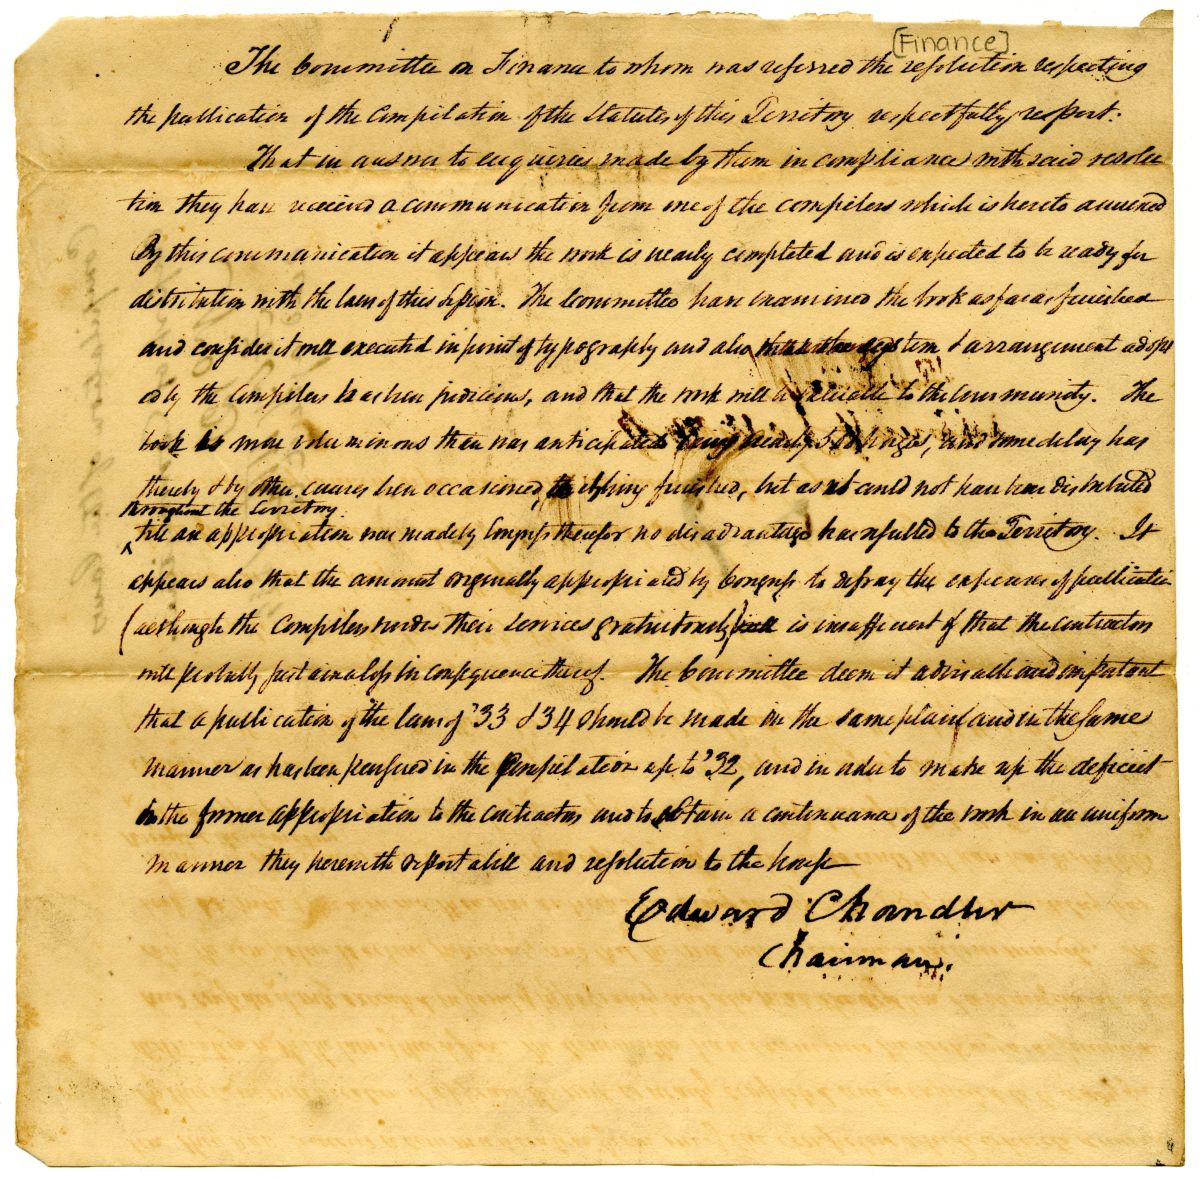 [Finance]
The Committee on Finance to whom was referred the resolution respecting
the publication of the Compilation of the Statutes of this Territory respectfully report.
That in answer to enquiries made by them in compliance with said resolu
tion they have received a communication from one of the compilers which is hereto annexed
By this communication it appears the work is nearly completed and is expected to be ready for
distribution with the laws of this Session. The Committee have examined the book as far as finished
and consider it well executed in point of typography and also that the system & arrangement adopt
ed by the Compilers has been judicious, and that the work will be valuable to the Community. The
book is more voluminous than was anticipated being nearly pages, and some delay has
thereby & by other causes been occasioned, in its being finished, but as it could not have been distributed
throughout the Territory
till an appropriation was made by Congress therefor no disadvantage has resulted to the Territory. It
appears also that the amount originally appropriated by Congress to defray the expenses of publication
(although the Compilers render their services gratuitously) is insufficient & that the contractors
will probably sustain a loss in consequence thereof. The Committee deem it advisable and important
that a publication of the laws of '33 & 34 should be made on the same plan and in the same
manner as has been pursued in the Compilation up to '32, and in order to make up the deficit
in the former appropriation to the contractors and to obtain a continuance of the work in an uniform
manner they herewith report a bill and resolution to the house
Edward Chandler
Chairman.